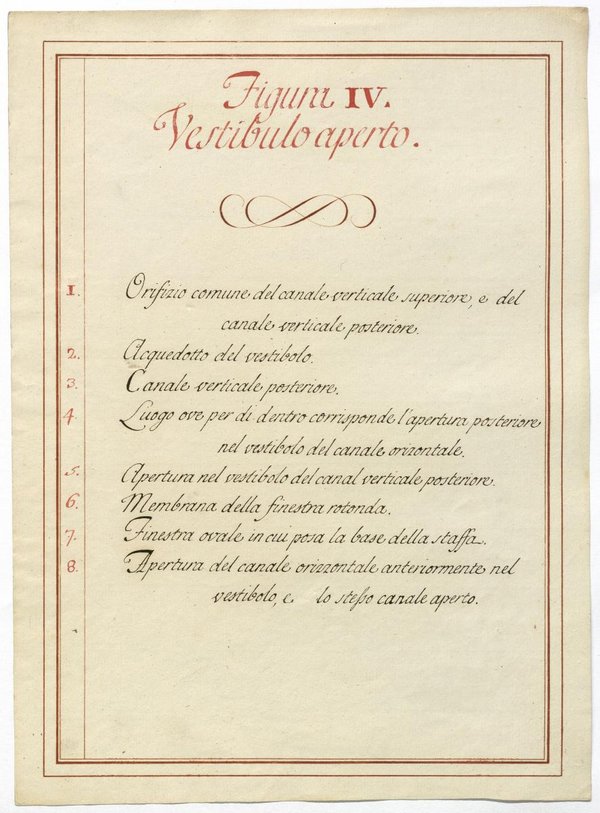 Figura IV.
Vestibulo aperto.
1. Orifizio comune del canale verticale superiore, e del
canale verticale posteriore.
2. Acquedotto del vestibolo.
3. Canale verticale posteriore.
4 Luogo ove per di dentro corrisponde l'apertura posteriore
nel vestibolo del canale orizontale.
5. Apertura nel vestibolo del canal verticale posteriore.
6. Membrana della finestra rotonda.
7. Finestra ovale in cui posa la base della staffa.
8. Apertura del canale orizzontale anteriormente nel
vestibolo, e lo stesso canale aperto.